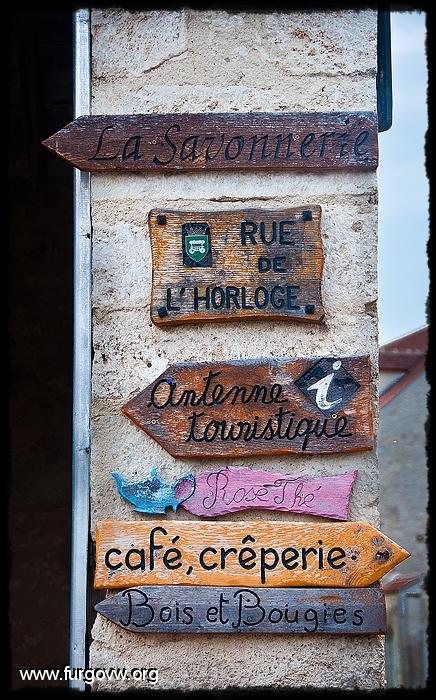 La Savonnerie
RUE
DE
L'HORLOGE
Antenne
touristique
i
Rose Thé
café, crêperie
Bois et Bougies
www.furgovw.org